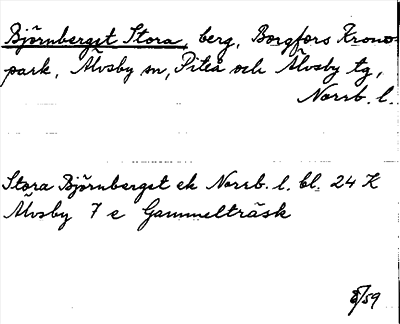 Björnberget Stora, berg, Borgfors Krono-
park, Älvsby sn, Piteå och Älvsby tg,
Norrb. l.
Stora Björnberget ek Norrb. l. bl. 24 K
Älvsby 7 e Gammelträsk
/59